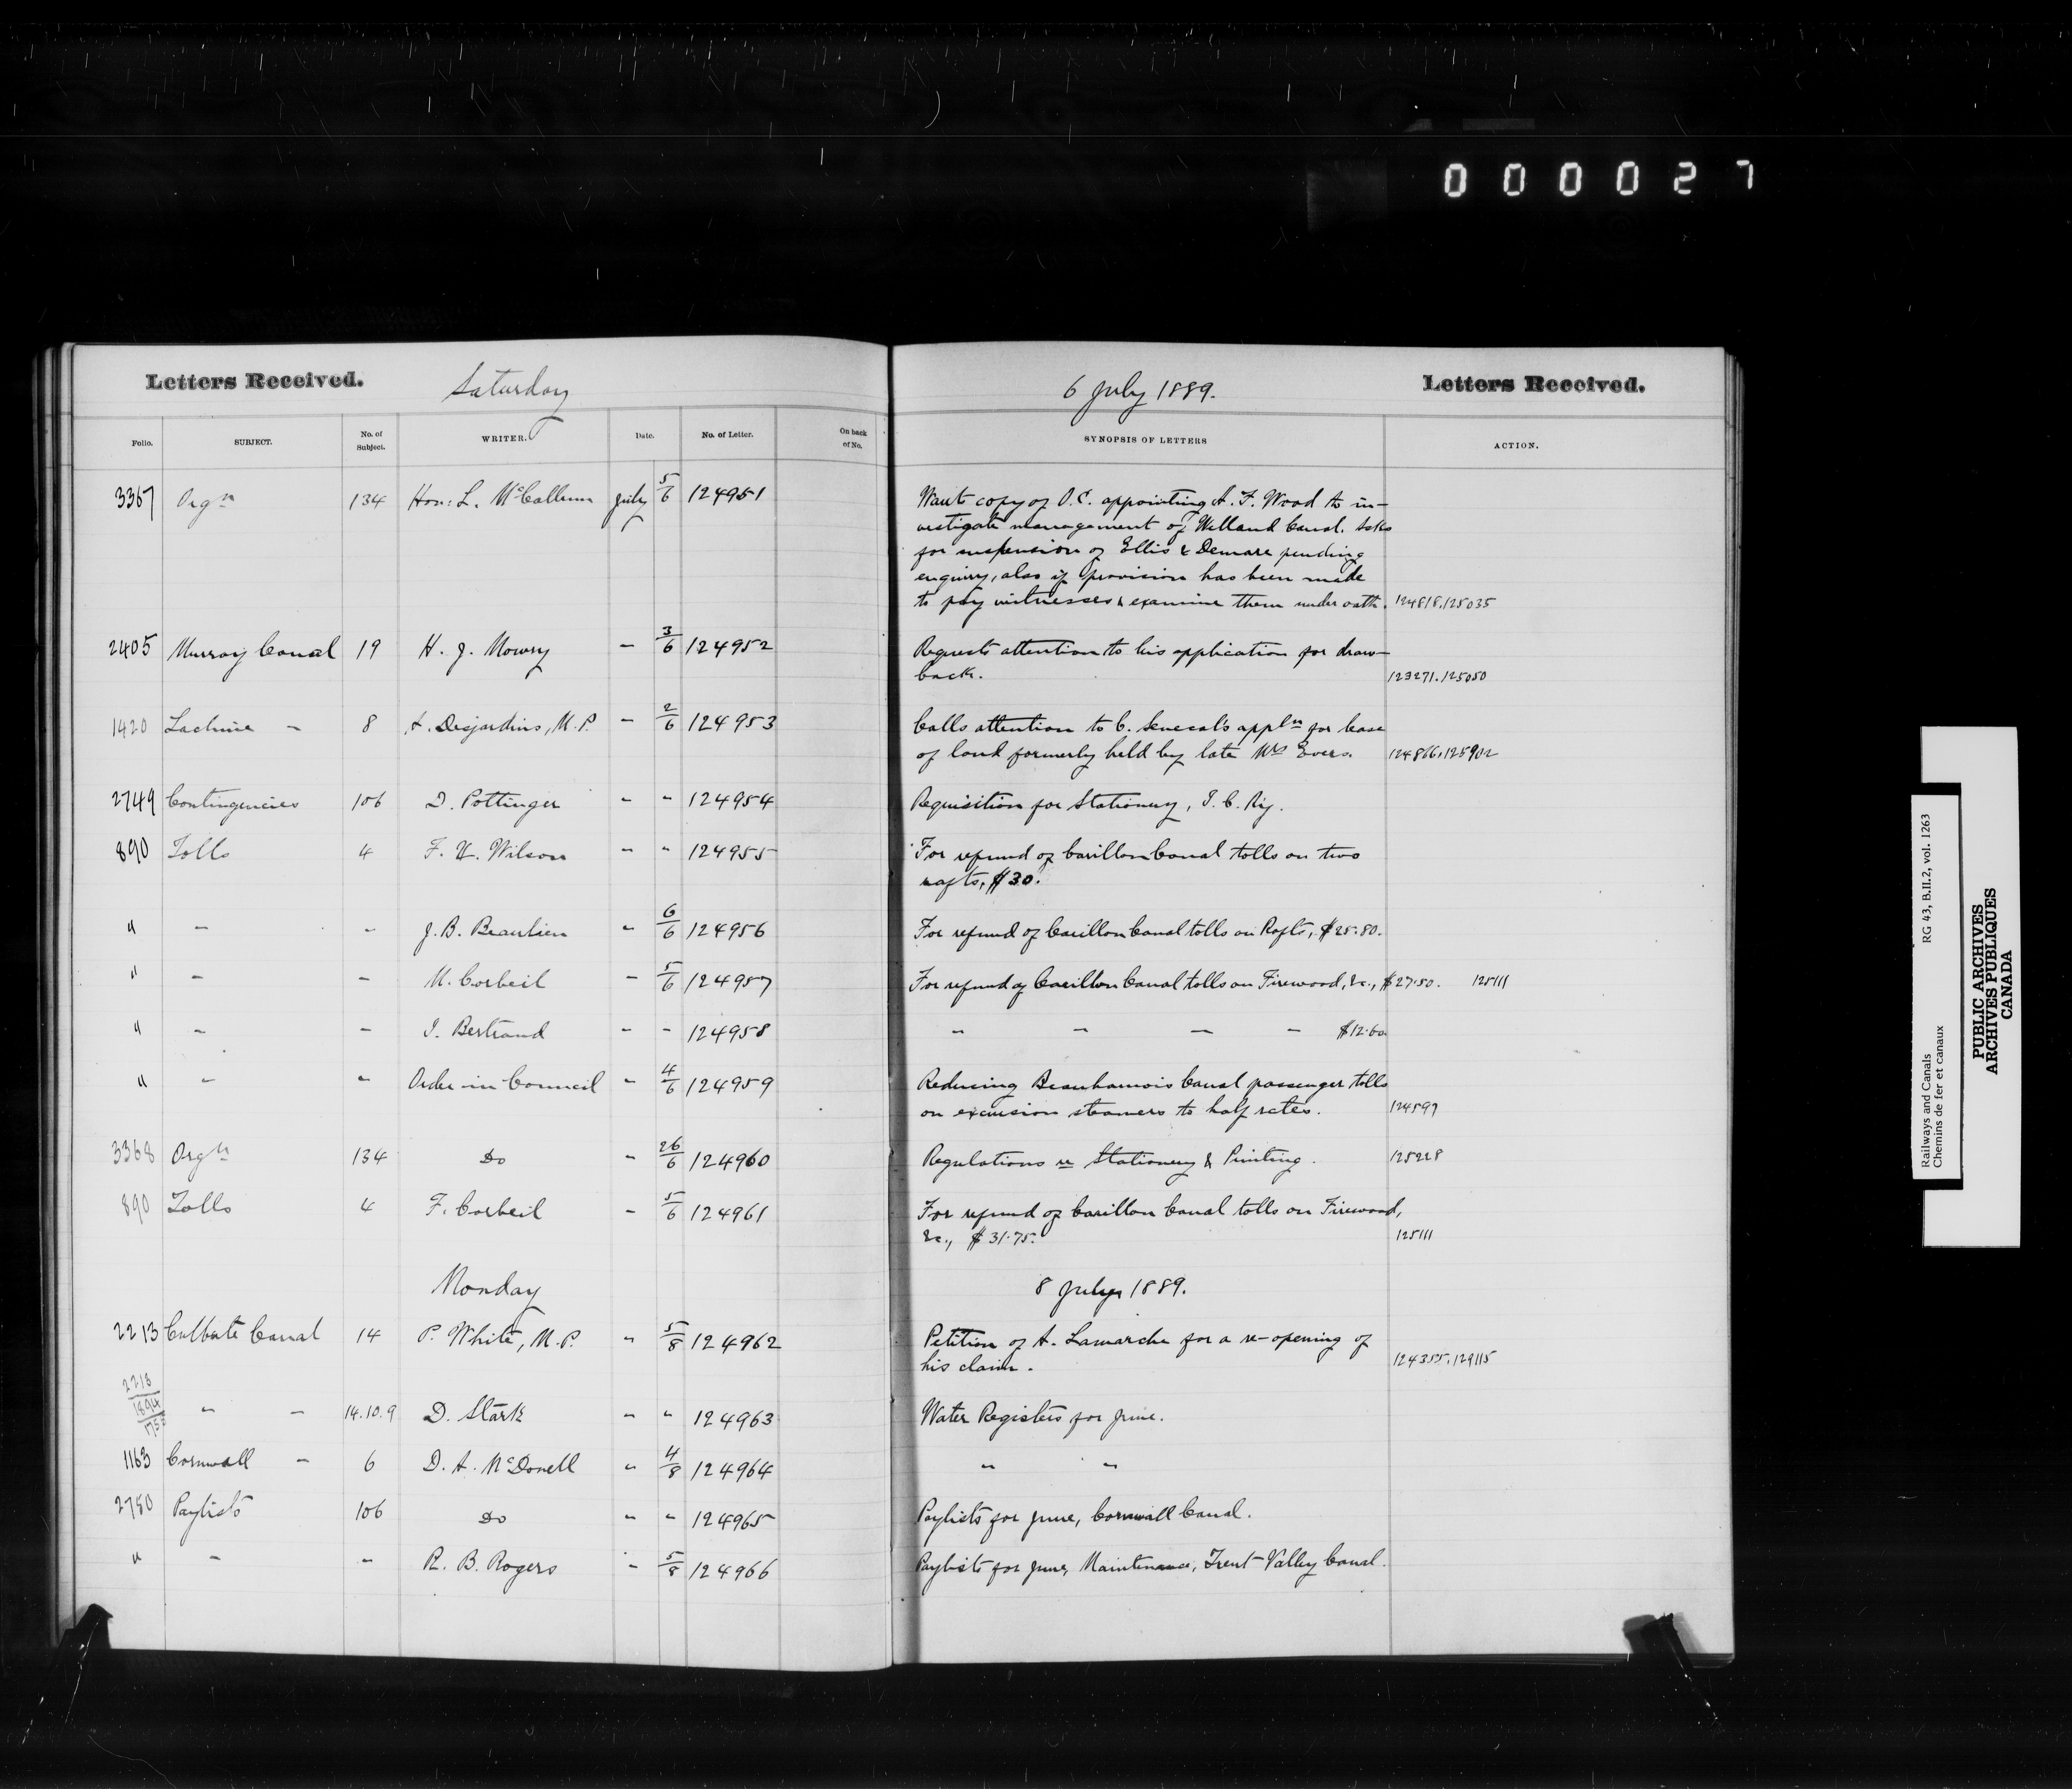 0 0 0 0 2 7
Letters Received. Saturday 6 July 1889. Letters Received.
Folio. SUBJECT. No. of Subject. WRITER. Date. No. of Letter. On back of No. SYNOPSIS OF LETTERS ACTION.
3367 Orgn 134 Hon: L. McCallum July 5/6 124951 Want copy of O.C. appointing A. F. Wood to in-
vestigate management of Welland Canal. Asks
for suspension of Ellis & Demare pending
enquiry, also if provision has been made
to pay witnesses & examine them under oath. 124818.125035
2405 Murray Canal 19 H. J. Mowry - 3/6 124952 Requests attention to his application for draw-
back. 123271.125050
1420 Lachine - 8 A. Desjardins, M.P. - 2/6 124953 Calls attention to C. Senecal's appln for lease
of land formerly held by late Mrs Evers. 124866.125902
2749 Contingencies 106 D. Pottinger - - 124954 Requisition for Stationery, I. C. Ry.
890 Tolls 4 F. H. Wilson - " 124955 For refund of Carillon Canal tolls on two
rafts, $30.
" - - J. B. Beaulieu - 6/6 124956 For refund of Carillon Canal tolls on Rafts, $25.80.
" - - M. Corbeil - 5/6 124957 For refund of Carillon Canal tolls on Firewood, &c., $27.50. 125111
" - - I. Bertrand - - 124958 - - - - $12.60
" - - Order-in-Council - 4/6 124959 Reducing Beauharnois Canal passenger tolls
on excursion steamers to half rates. 124597
3368 Orgn 134 Do - 26/6 124960 Regulations re Stationery & Printing. 125228
890 Tolls 4 F. Corbeil - 5/6 124961 For refund of Carillon Canal tolls on Firewood,
&c., $31.75. 125111
Monday 8 July 1889.
2213 Culbute Canal 14 P. White, M.P. - 5/8 124962 Petition of A. Lamarche for a re-opening of
his claim. 124355.129115
2218 1894 - - 14.10.9 D. Stark - " 124963 Water Registers for June.
1163 Cornwall - 6 D. A. McDonell - 4/8 124964 - -
2780 Paylists 106 Do - " 124965 Paylists for June, Cornwall Canal.
" - - R. B. Rogers - 5/8 124966 Paylists for June, Maintenance, Trent Valley Canal.
Railways and Canals RG 43, B.II.2, vol. 1263
Chemins de fer et canaux
PUBLIC ARCHIVES
ARCHIVES PUBLIQUES
CANADA